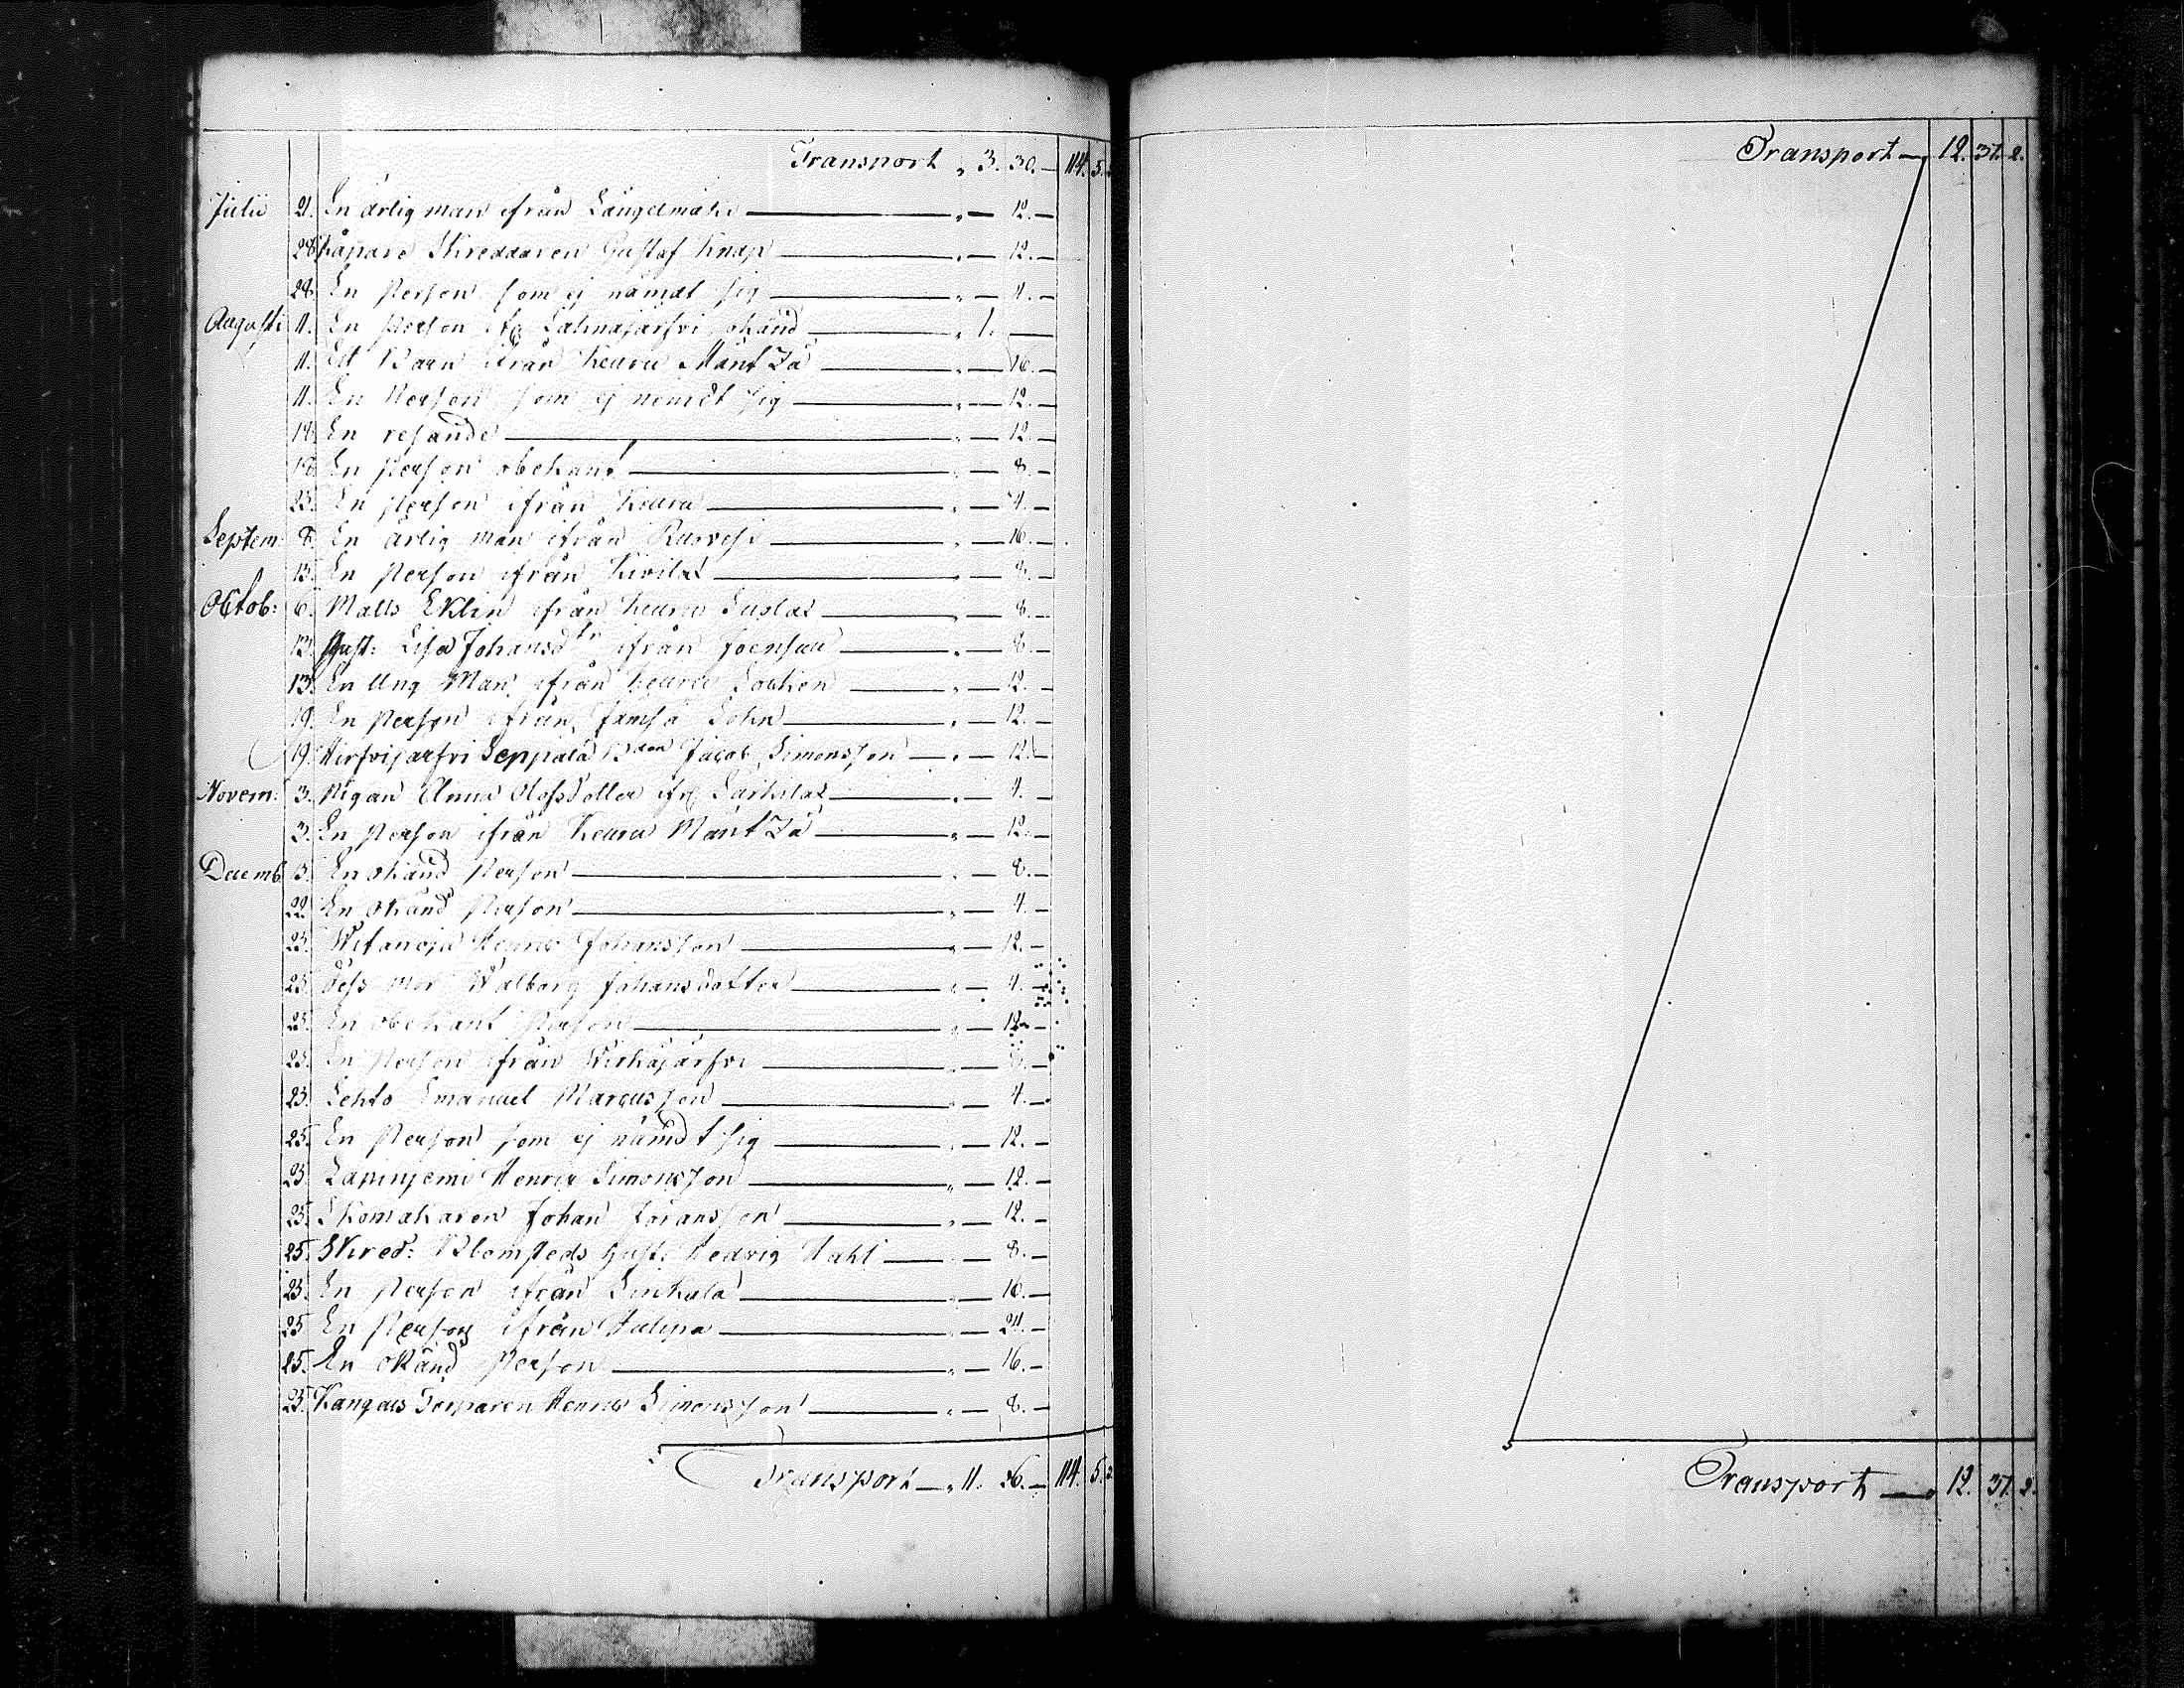 Transport „ 3. 30. — 114. 5.
Julii 21. En ärlig man ifrån Längelmäki — „ — 12. —
28. Kånare Skreddaren Gustaf Knap — „ — 12. —
28. En Person som ej nämdt sig — „ — 4. —
Augusti 11. En Person ifr Lahnajärfvi okänd — „ 1. —
11. Ett Barn ifrån Keuru Mänt Jä — „ — 16. —
11. En Person som ej nemdt sig — „ — 12. —
18. En resande — „ — 12. —
18. En Person obekant — „ — 8. —
25. En Person ifrån Keuru — „ — 4. —
Septem: 8. En ärlig man ifrån Ruovesi — „ — 16. —
15. En Person ifrån Kivilax — „ — 8. —
Octob: 6. Matts Eklin ifrån Keuru — „ — 8. —
13. Hust: Lisa Johansdtr ifrån Joensuu — „ — 8. —
13. En Ung Man ifrån Keuru Sockn — „ — 12. —
19. En Person ifrån Jämsä Sokn — „ — 12. —
19. Hirfvijärfvi Seppälä Bden Jacob Simonsson — „ — 12. —
Novem: 3. Pigan Anna Olofsdotter ifr — „ — 4. —
3. En Person ifrån Keuru Mänt Jä — „ — 12. —
Decemb. 13. En okänd Person — „ — 8. —
22. En okänd Person — „ — 4. —
25. Johansson — „ — 12. —
25. Dess mor Walborg Johansdotter — „ — 4. —
25. En obekant Person — „ — 12. —
25. En Person ifrån Wirkajärfvi — „ — 8. —
25. Lehto Emanuel Marcusson — „ — 4. —
25. En Person som ej nämdt sig — „ — 12. —
25. Lapinjemi Henrix Simonsson — „ — 12. —
25. Skomakaren Johan Göransson — „ — 12. —
25. Skred: Blomsteds Hust: Hedvig Hahl — „ — 8. —
25. En Person ifrån Sinkala — „ — 16. —
25. En Person ifrån — „ — 24. —
25. En okänd Person — „ — 16. —
25. Kangas Torparen Simonsson — „ — 8. —
Transport — „ 11. 26. — 114. 5.
Transport — „ 12. 37. 2.
Transport — „ 12. 37. 2.